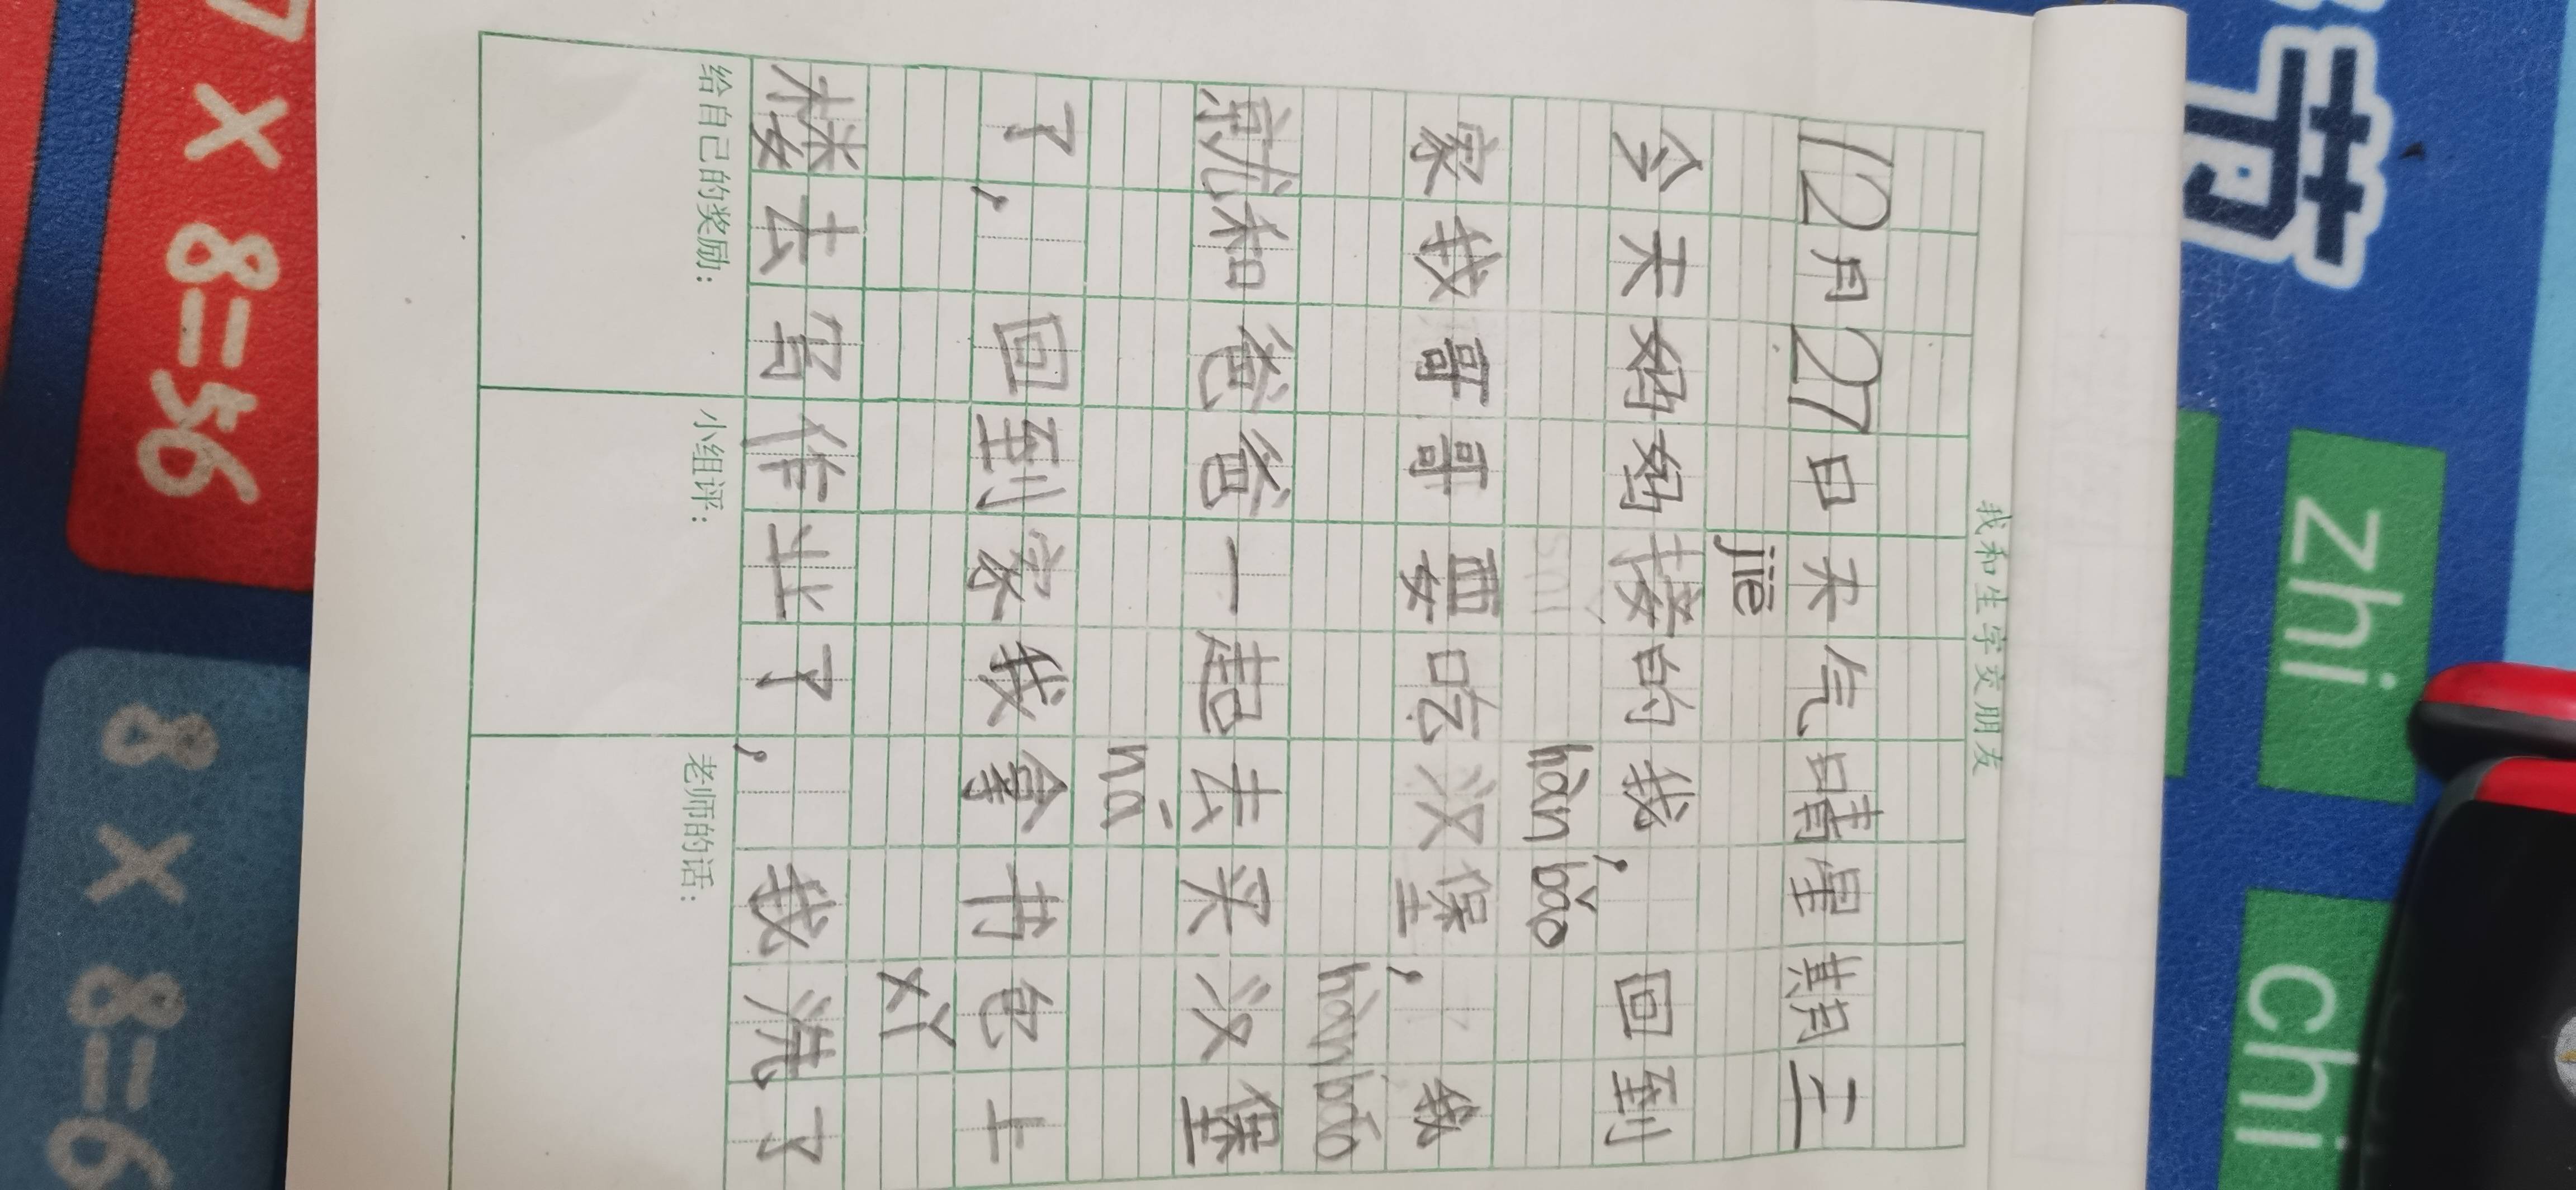 我和生字交朋友
12月27日 天气晴 星期三
jiē
今天妈妈接的我，回到
hàn bǎo
家我哥哥要吃汉堡，我
hàn bǎo
就和爸爸一起去买汉堡
ná
了，回到家我拿书包上
xǐ
楼去写作业了，我洗了
给自己的奖励：
小组评：
老师的话：
7×8=56
8×8=6
节
zhi
chi